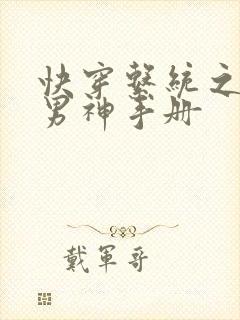 快穿繫統之
男神手册
戴軍哥